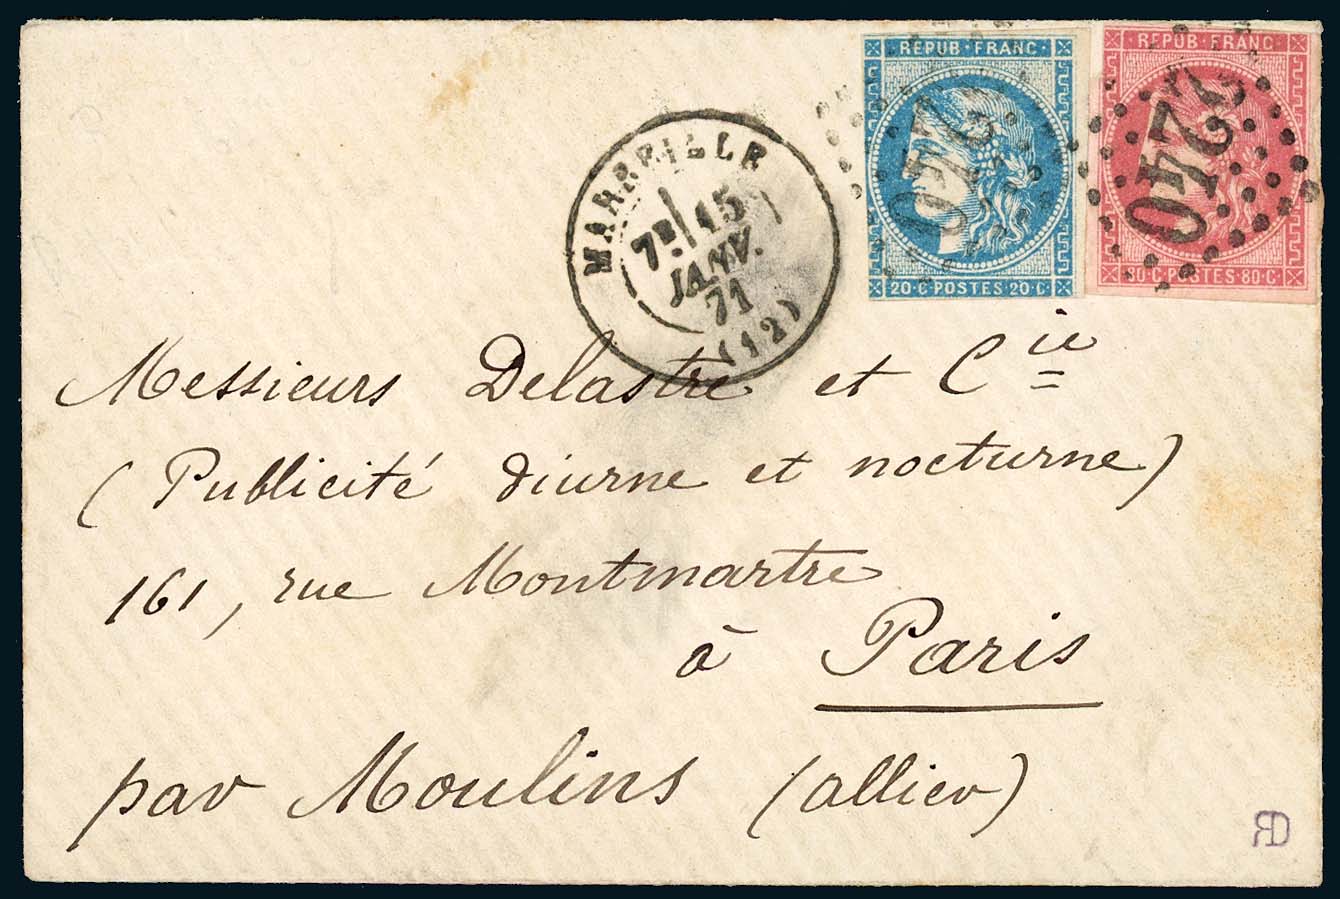 REPUB·FRANC·
20·C·POSTES·20·C·
2240
REPUB·FRANC·
80·C·POSTES·80·C·
2240
MARSEILLE
7E 15
JANV.
71
(12)
Messieurs Delastre et Cie
(Publicité diurne et nocturne)
161, rue Montmartre
à Paris
par Moulins (allier)
RD